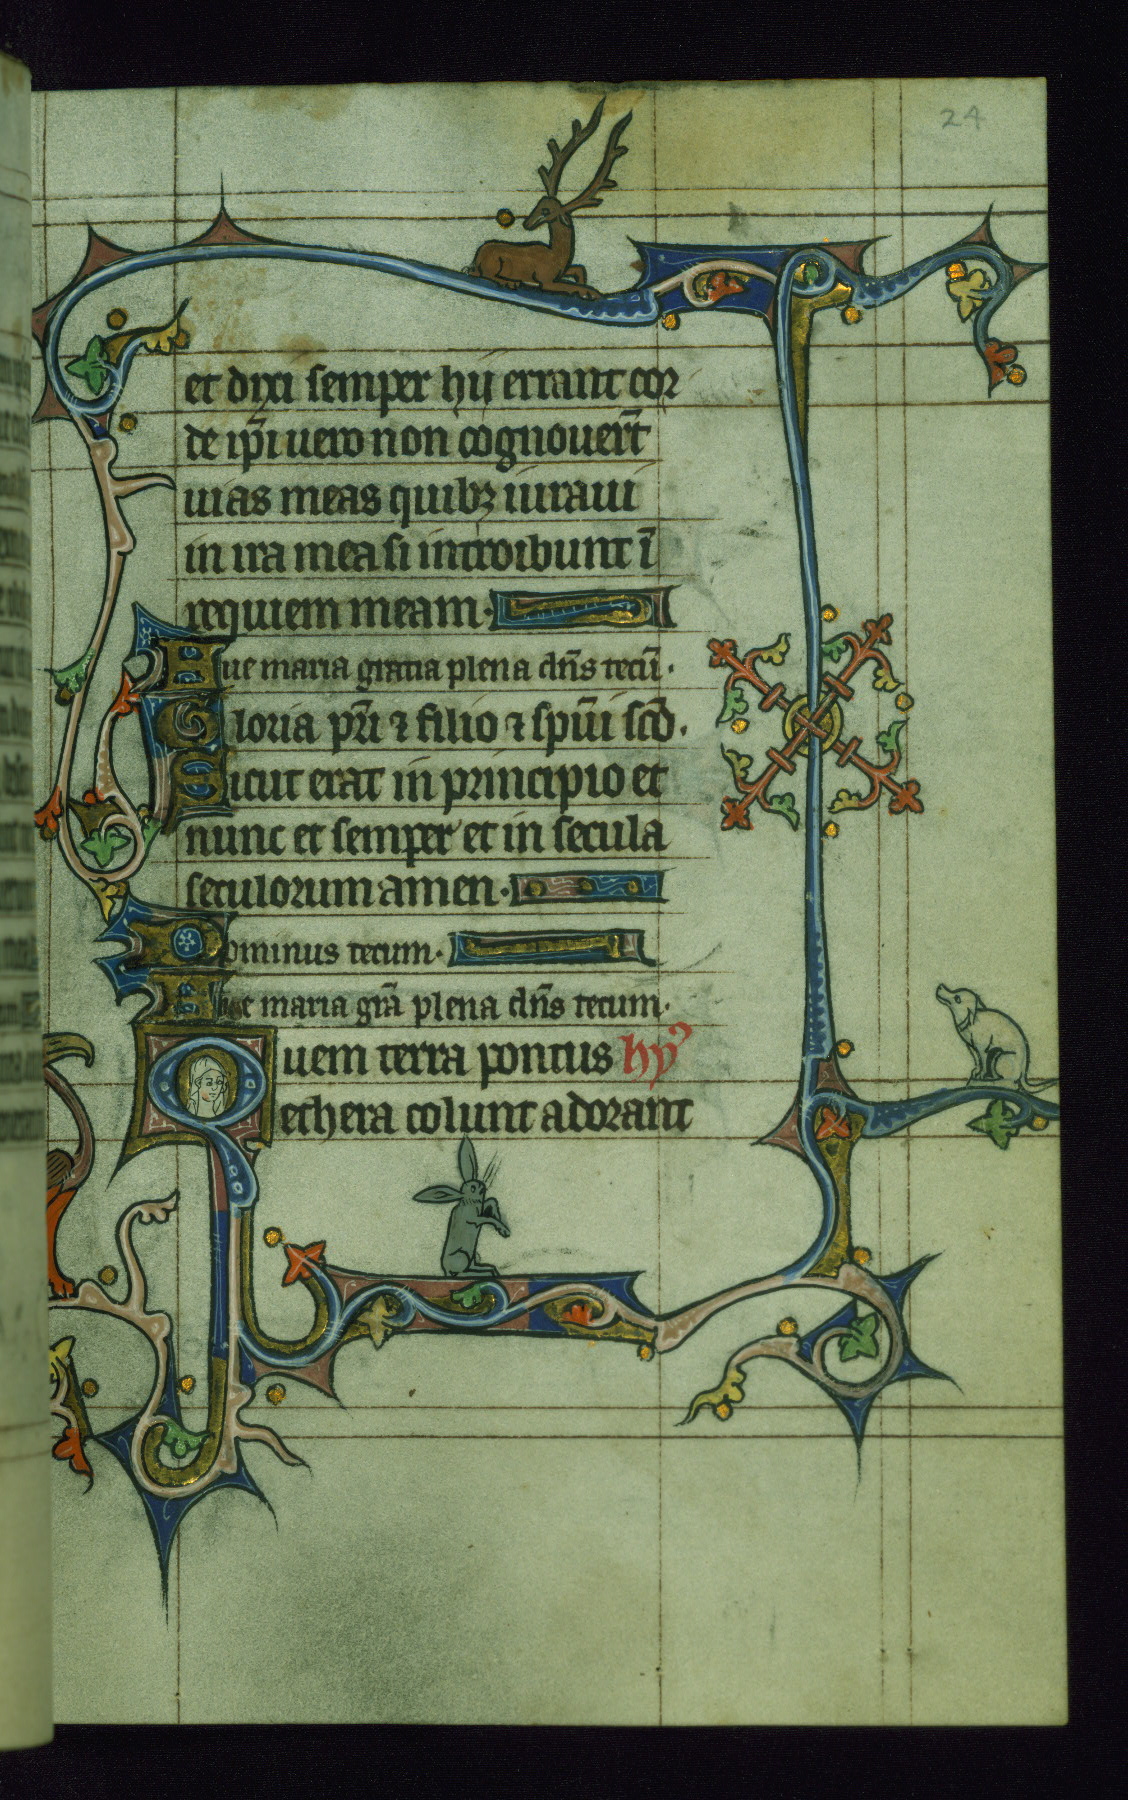 24
et dixi semper hij errant cor
de ip̄i uero non cognouer̄t
uias meas quibꝫ iuraui
in ira mea si introibunt ī
requiem meam.
Aue maria gratia plena dn̄s tecū.
Gloria pr̄i ⁊ filio ⁊ spūi scō.
Sicut erat in principio et
nunc et semper et in secula
seculorum amen.
Dominus tecum.
Aue maria grā plena dn̄s tecum.
Quem terra pontus hyꝰ
ethera colunt adorant